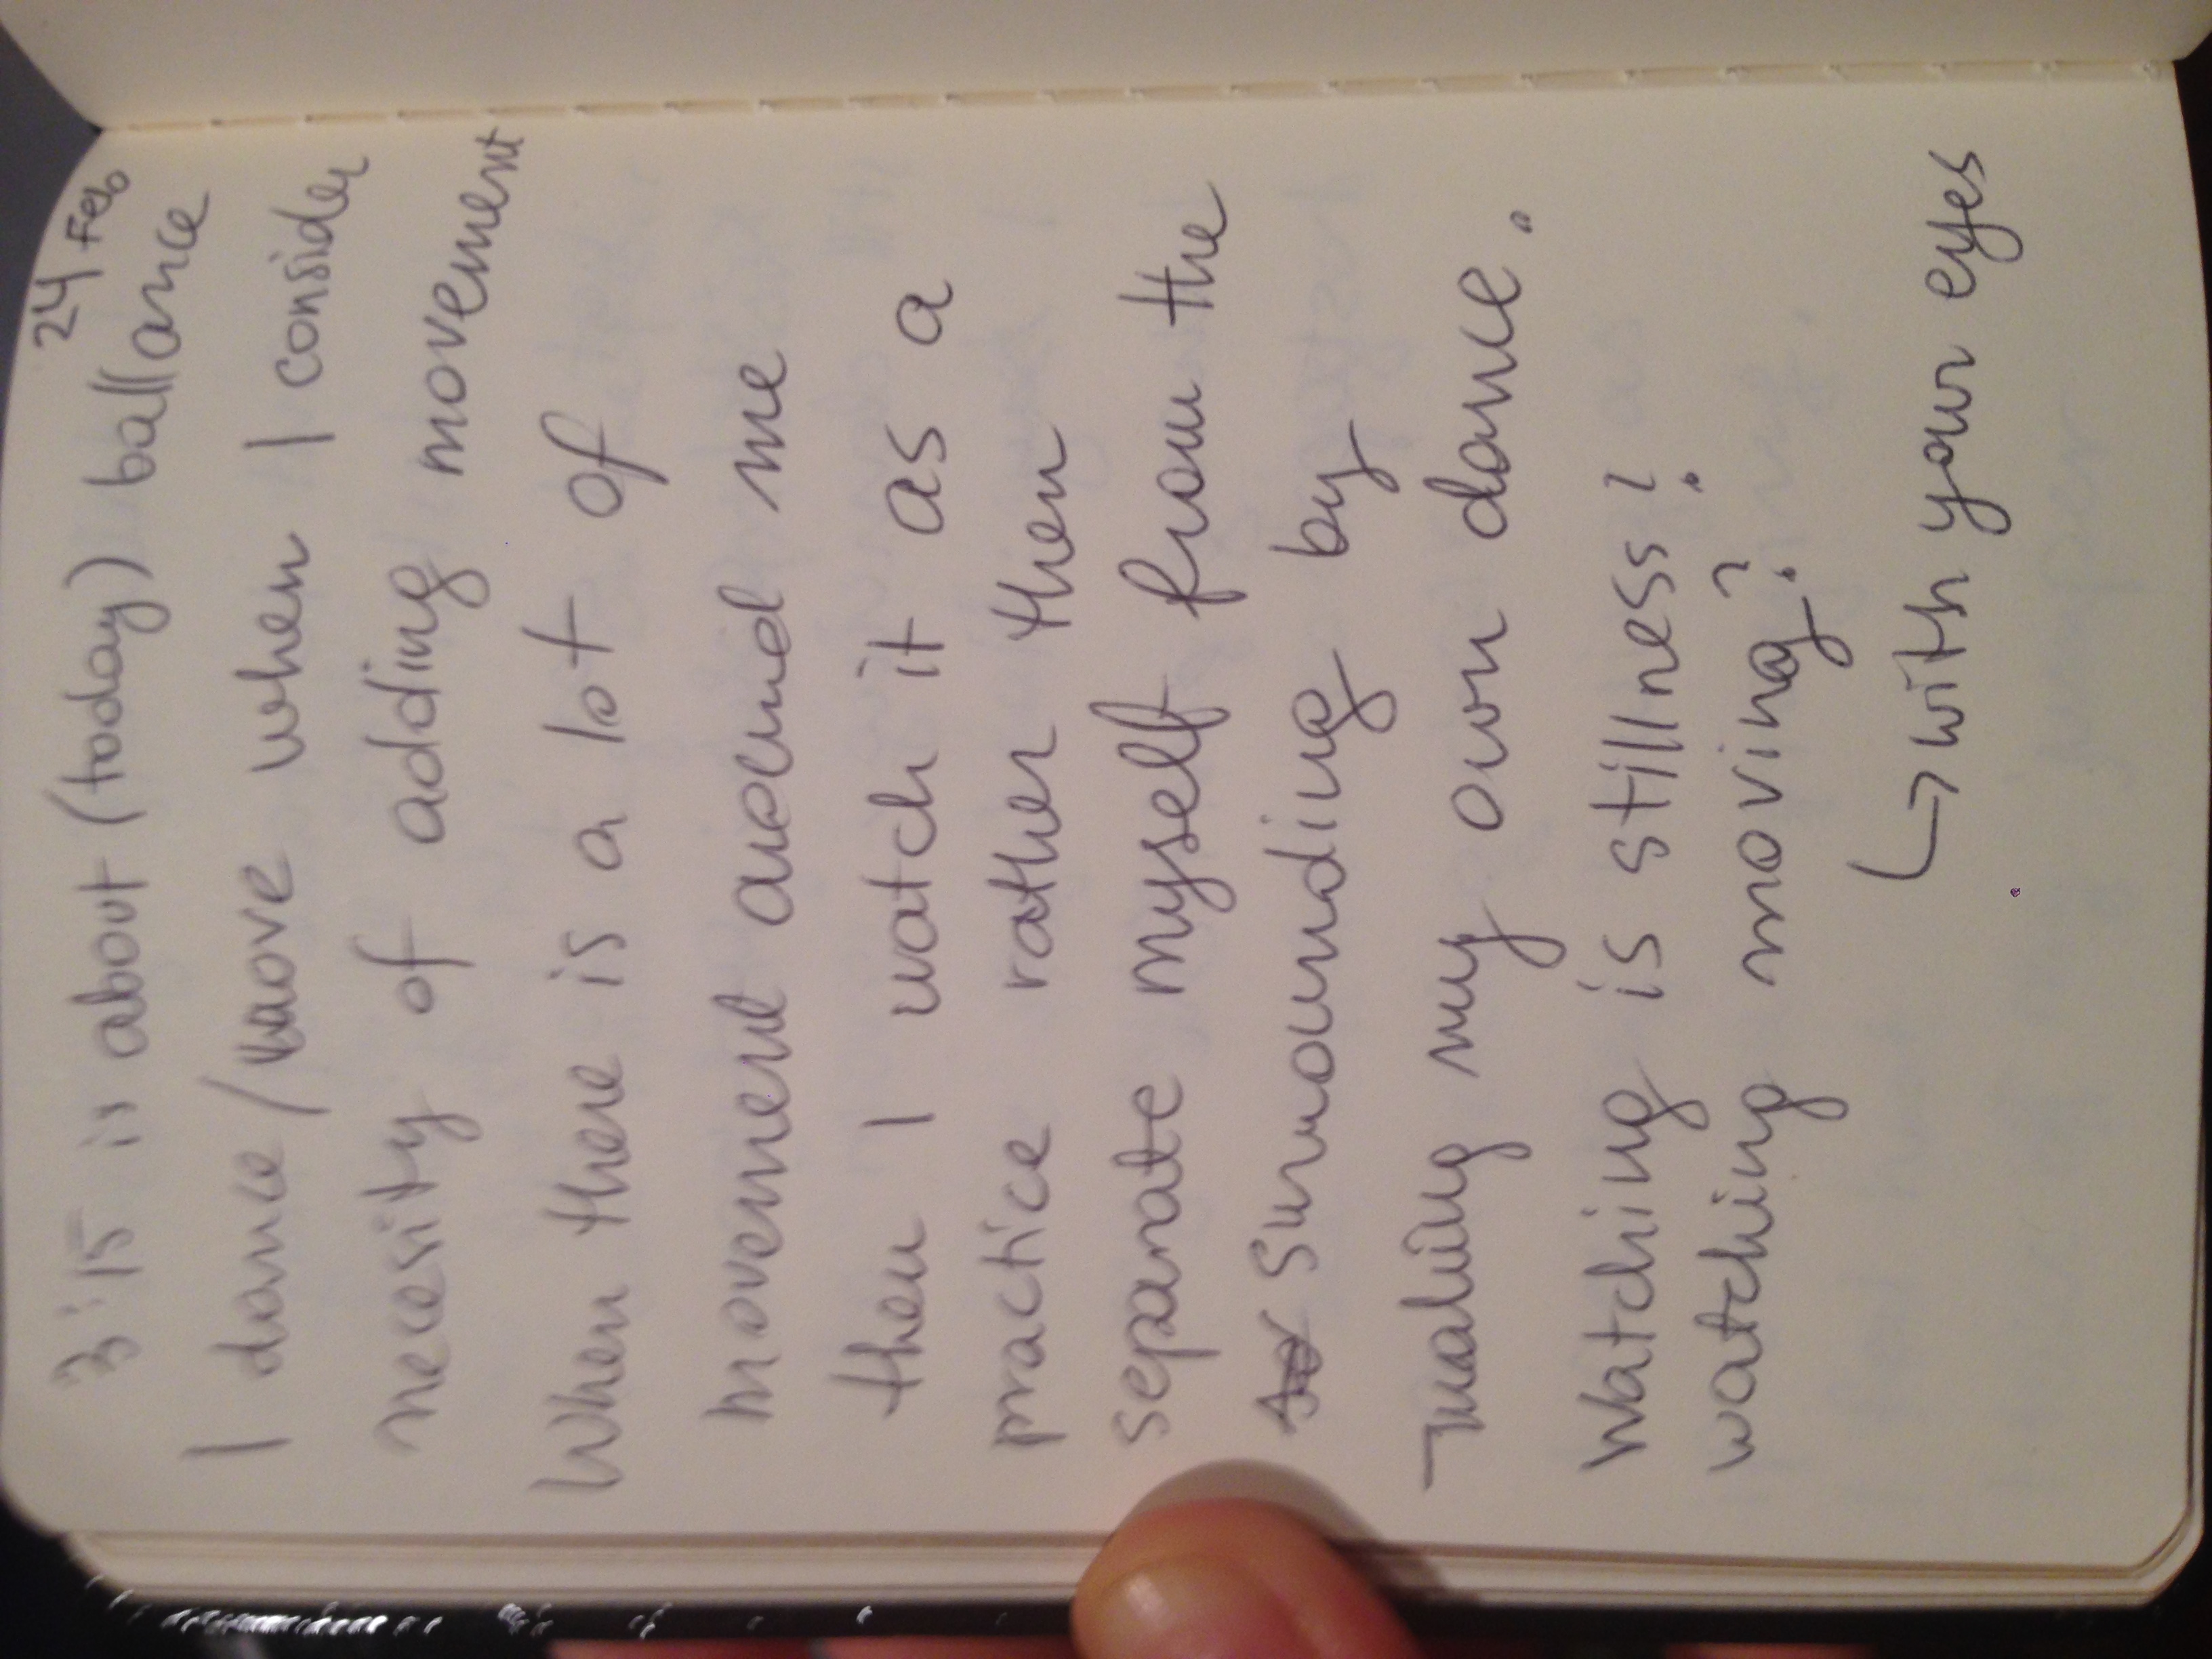 24 Feb
3'15 is about (today) ballance
I dance/move when I consider
necesity of adding movement
When there is a lot of
movement around me
then I watch it as a
practice rather then
separate myself from the
surrounding by
making my own dance.
Watching is stillness?
watching moving?
↳ with your eyes